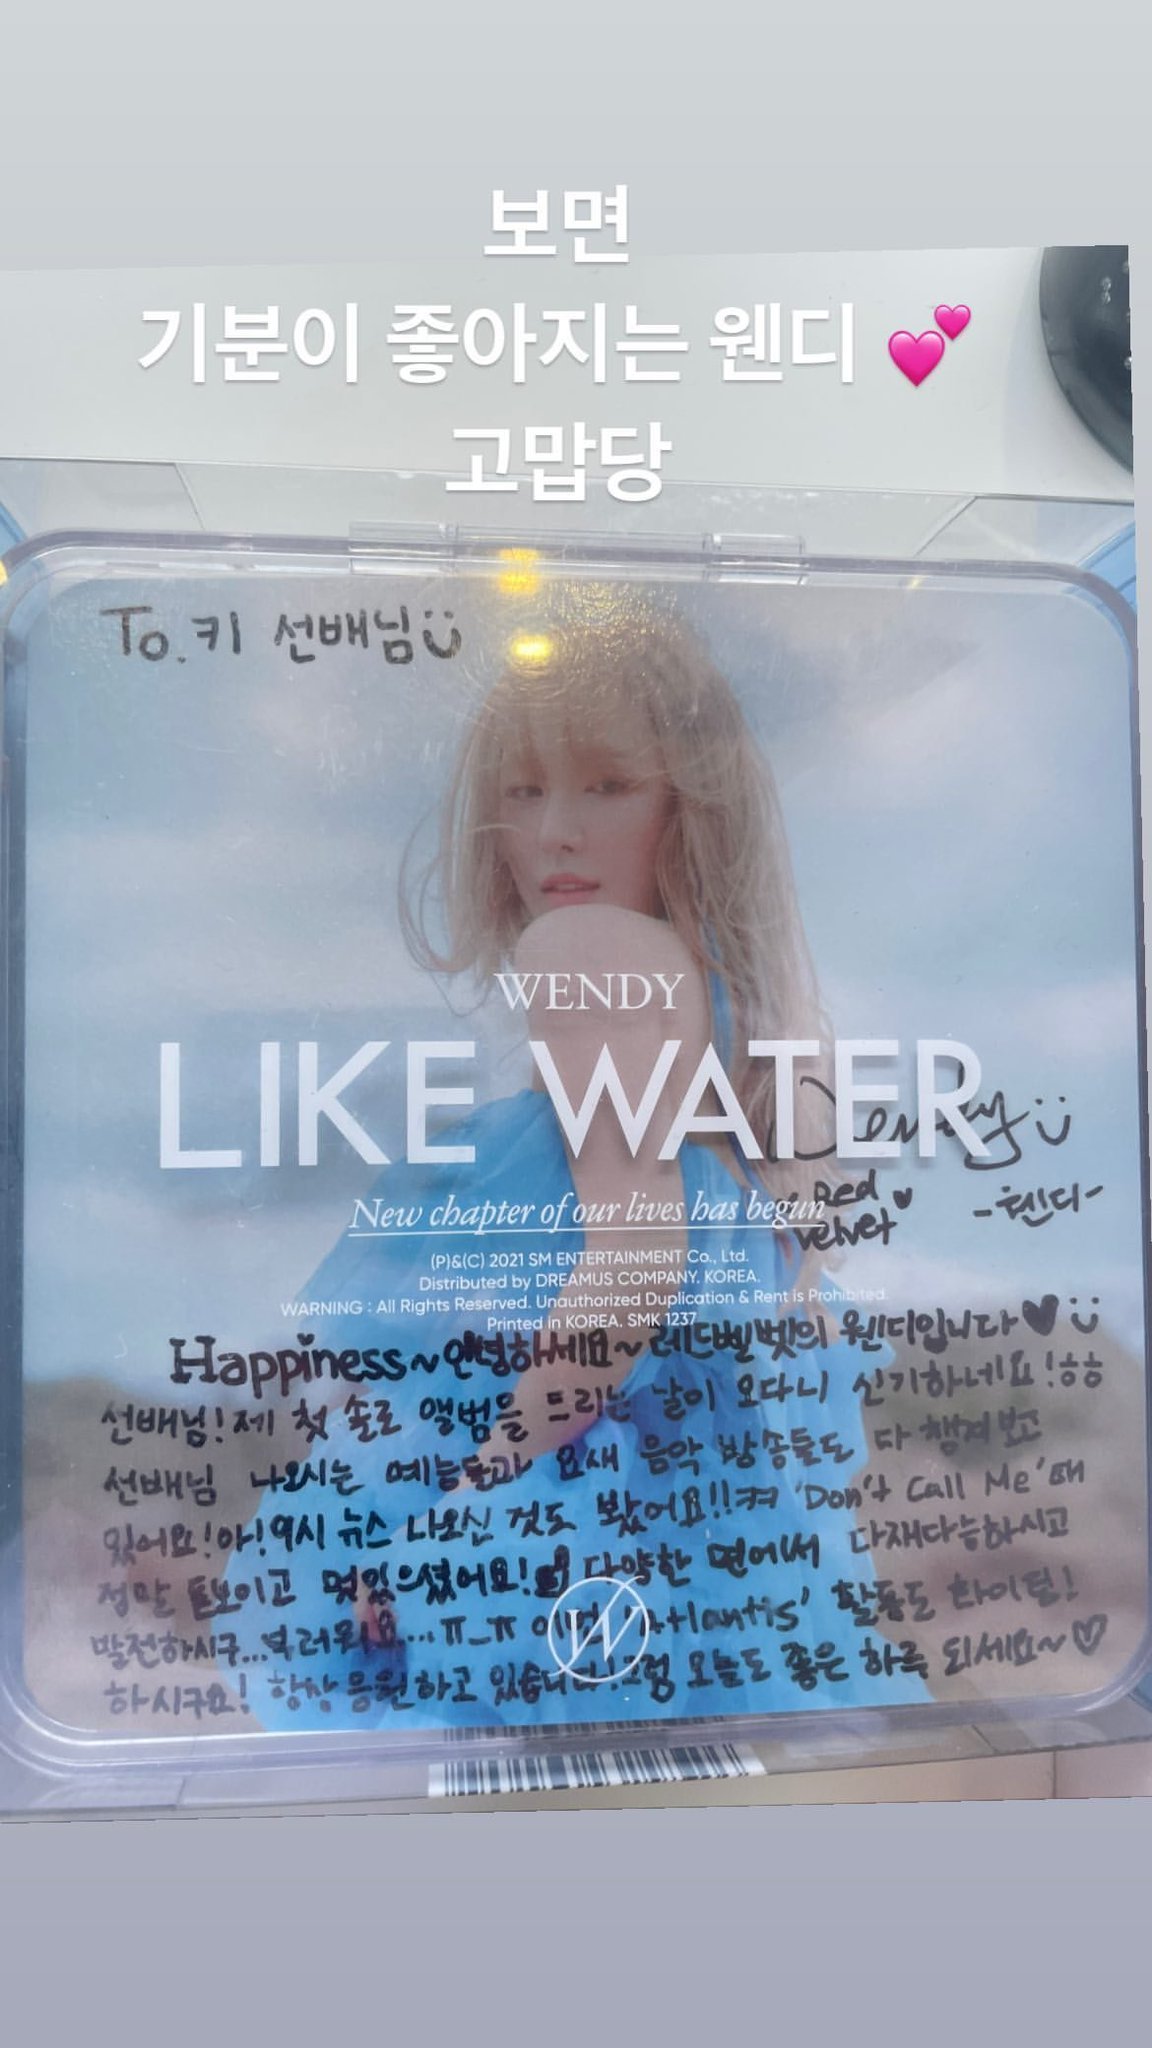 보면
기분이 좋아지는 웬디 💕
고맙당
To.키 선배님
WENDY
LIKE WATER
Wendy
New chapter of our lives has begun
Red
Velvet ♥
-웬디-
(P)&(C) 2021 SM ENTERTAINMENT Co., Ltd.
Distributed by DREAMUS COMPANY. KOREA.
WARNING : All Rights Reserved. Unauthorized Duplication & Rent is Prohibited.
Printed in KOREA. SMK 1237
Happiness~안녕하세요~레드벨벳의 웬디입니다♥
선배님!제 첫 솔로 앨범을 드리는 날이 오다니 신기하네요!ㅎㅎ
선배님 나오시는 예능들과 요새 음악 방송들도 다 챙겨보고
있어요!아!9시 뉴스 나오신 것도 봤어요!!ㅋㅋ 'Don't Call Me'때
정말 돋보이고 멋있으셨어요! 다양한 면에서 다재다능하시고
발전하시구...부러워요...ㅠ_ㅠ 이번 'Atlantis' 활동도 화이팅!
하시구요! 항상 응원하고 있습니다!그럼 오늘도 좋은 하루 되세요~♡
W